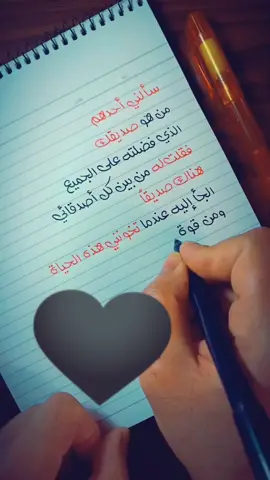 سألني أحدهم
من هو صديقك
الذي فضلته على الجميع
فقلت له من بين كل أصدقائي
هناك صديقاً
ألجأ إليه عندما تخونني هذه الحياة
ومن قوة